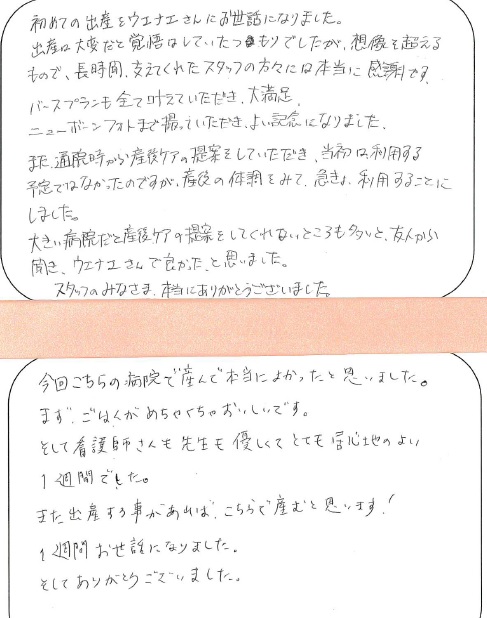 初めての出産をウエナエさんにお世話になりました。
出産は大変だと覚悟はしていたつもりでしたが、想像を超える
もので、長時間、支えてくれたスタッフの方々には本当に感謝です。
バースプランも全て叶えていただき、大満足。
ニューボーンフォトまで撮っていただき、よい記念になりました。
また、通院時から産後ケアの提案をしていただき、当初は利用する
予定ではなかったのですが、産後の体調をみて、急きょ、利用することに
しました。
大きい病院だと産後ケアの提案をしてくれないところも多いと、友人から
聞き、ウエナエさんで良かった、と思いました。
スタッフのみなさま、本当にありがとうございました。
今回こちらの病院で産んで本当によかったと思いました。
まず、ごはんがめちゃくちゃおいしいです。
そして看護師さんも先生も優しくてとても居心地のよい
1週間でした。
また出産する事があれば、こちらで産むと思います!
1週間お世話になりました。
そしてありがとうございました。